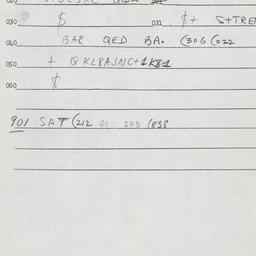 030 $ 031 $+ S+TRE
040 BAR QED BA. (306 (022
050 + Q KL8AJNC+1K81
060 $
901 SAT (212 (838